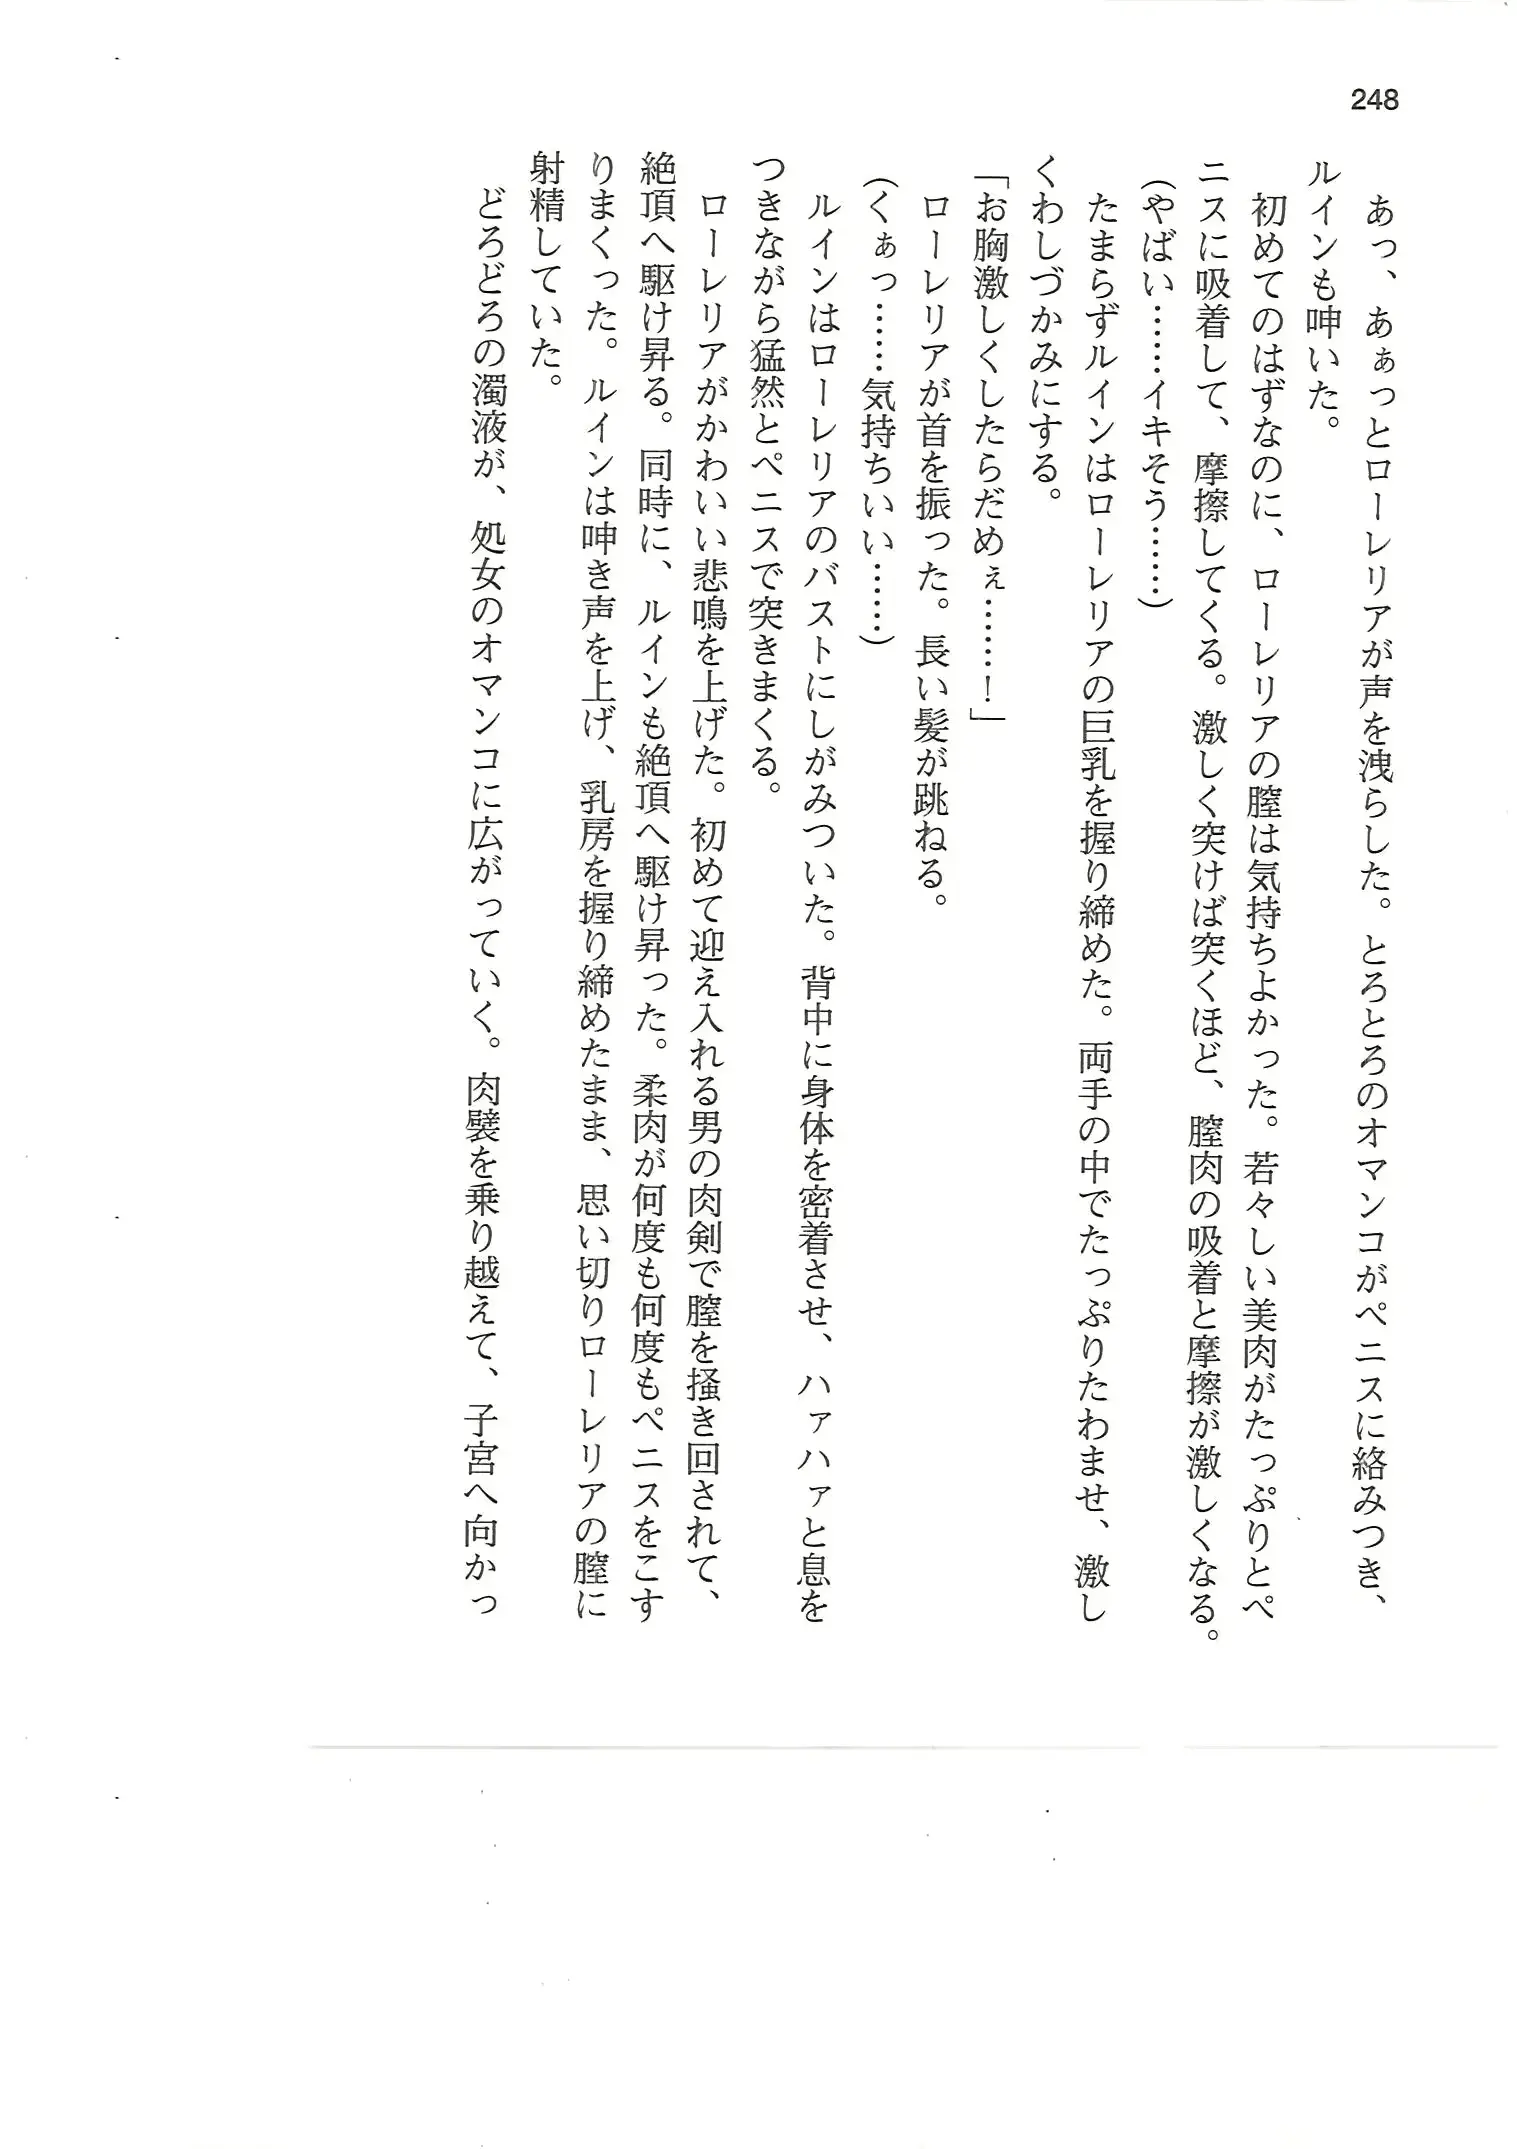 248
あっ、あぁっとローレリアが声を洩らした。とろとろのオマンコがペニスに絡みつき、
ルインも呻いた。
初めてのはずなのに、ローレリアの膣は気持ちよかった。若々しい美肉がたっぷりとペ
ニスに吸着して、摩擦してくる。激しく突けば突くほど、膣肉の吸着と摩擦が激しくなる。
（やばい……イキそう……）
たまらずルインはローレリアの巨乳を握り締めた。両手の中でたっぷりたわませ、激し
くわしづかみにする。
「お胸激しくしたらだめぇ……！」
ローレリアが首を振った。長い髪が跳ねる。
（くぁっ……気持ちいい……）
ルインはローレリアのバストにしがみついた。背中に身体を密着させ、ハァハァと息を
つきながら猛然とペニスで突きまくる。
ローレリアがかわいい悲鳴を上げた。初めて迎え入れる男の肉剣で膣を掻き回されて、
絶頂へ駆け昇る。同時に、ルインも絶頂へ駆け昇った。柔肉が何度も何度もペニスをこす
りまくった。ルインは呻き声を上げ、乳房を握り締めたまま、思い切りローレリアの膣に
射精していた。
どろどろの濁液が、処女のオマンコに広がっていく。肉襞を乗り越えて、子宮へ向かっ